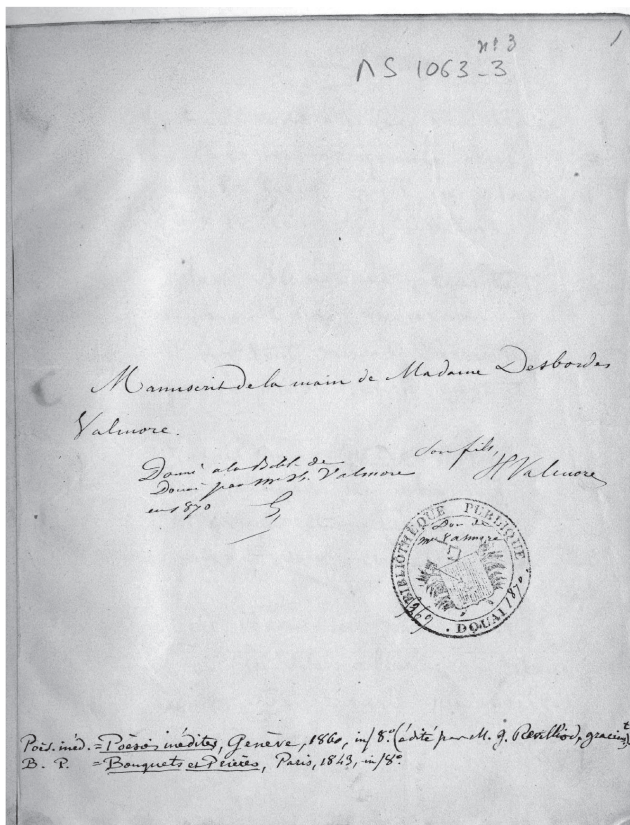 nº 3
1
MS 1063-3
Manuscrit de la main de Madame Desbordes
Valmore.
son fils,
H Valmore
Donné à la Bibl. de
Douai par Mr H. Valmore
en 1870
BIBLIOTHÈQUE PUBLIQUE
Don de
Mr Valmore
DOUAI 1870.
Poés. inéd. = Poésies inédites, Genève, 1860, in/8.º (édité par M. G. Revilliod, gracieust)
B. P. = Bouquets et Prières, Paris, 1843, in/8º.